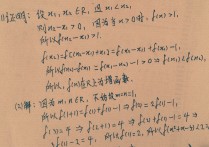 证明: 设x₁, x₂∈R, 且x₁<x₂
则x₂-x₁>0, 因为当x>0时, f(x)>1,
所以f(x₂-x₁)>1.
f(x₂)=f[(x₂-x₁)+x₁]=f(x₂-x₁)+f(x₁)-1,
所以f(x₂)-f(x₁)=f(x₂-x₁)-1>0⇒f(x₁)<f(x₂),
所以f(x)在R上为增函数.
(2)解: 因为m,n∈R, 不妨设m=n=1,
所以f(1+1)=f(1)+f(1)-1⇒f(2)=2f(1)-1,
f(3)=4⇒f(2+1)=4⇒f(2)+f(1)-1=4⇒
-2=4, 所以f(1)=2, 所以f(